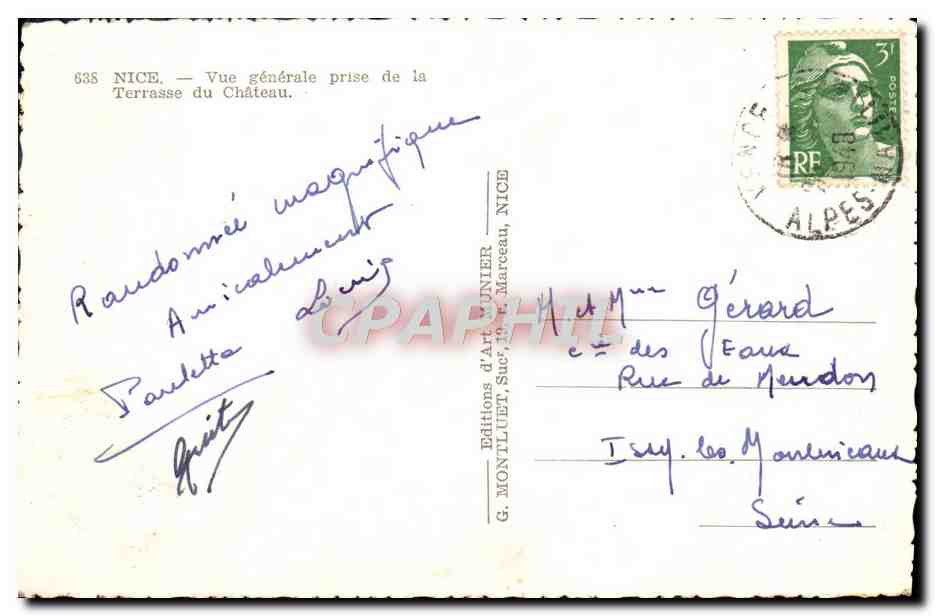 638 NICE. — Vue générale prise de la
Terrasse du Château.
Randonnée magnifique
Amicalement
Paulette Louis
G. MONTLUET, Sucr, 19, r. Marceau, NICE
Editions d'Art MUNIER
3F
POSTES
RF
VENCE
ALPES-MAR
CPAPHIL
M. et Mme Gérard
Cie des Eaux
Rue de Meudon
Issy-les-Moulineaux
Seine